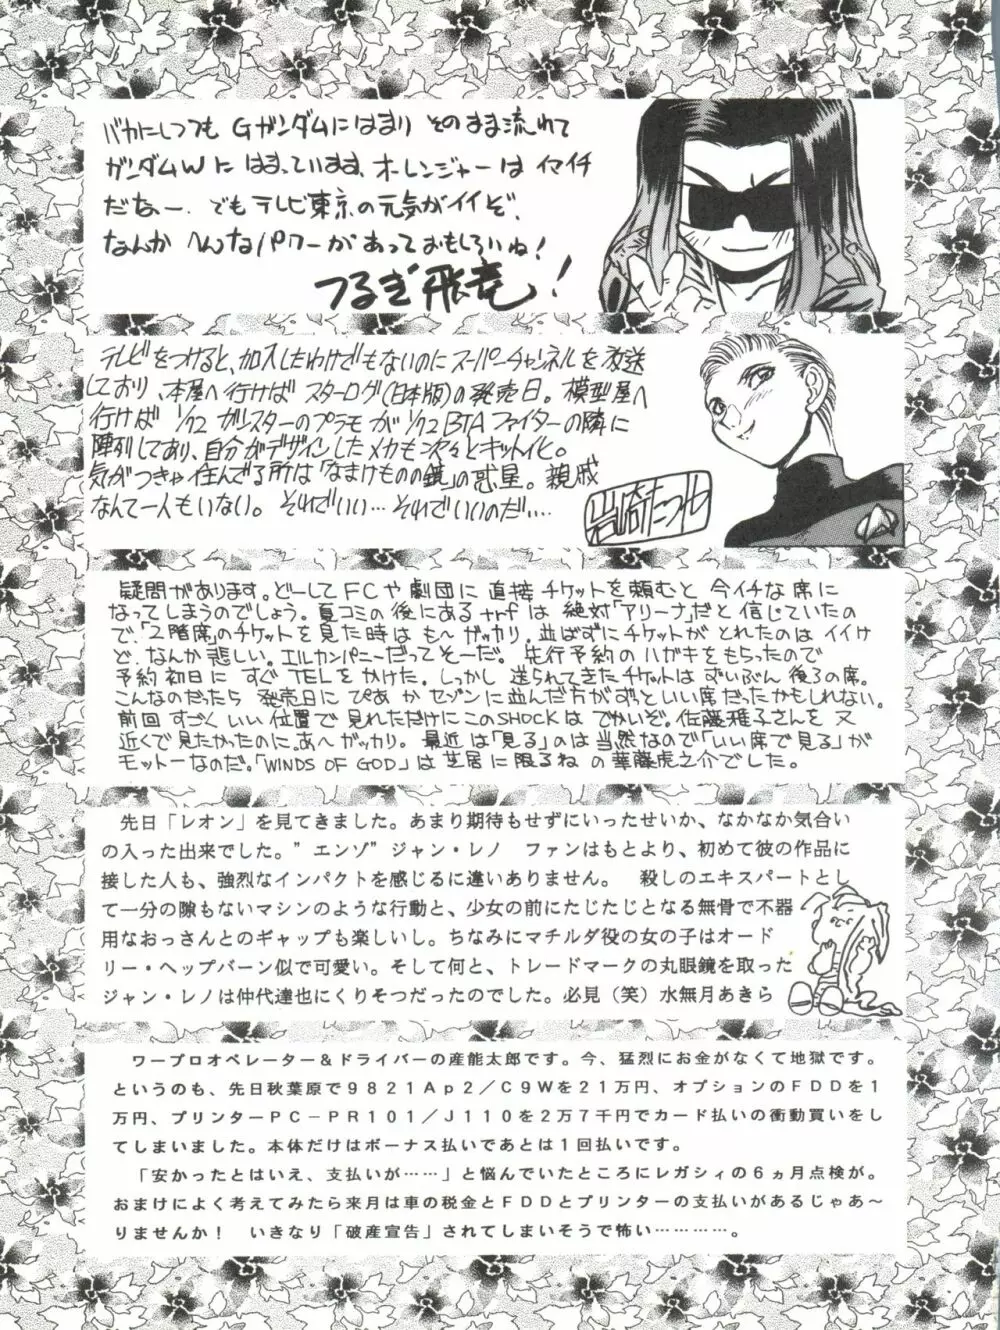 バカにしつつも Gガンダムにはまり そのまま流れて
ガンダムWに はまっています、オーレンジャーは イマイチ
だなー、でもテレビ東京の元気がイイぞ、
なんか へんなパワーがあっておもしろいね！
つるぎ飛竜！
テレビをつけると、加入したわけでもないのにスーパーチャンネルを放送
しており、本屋へ行けばスターログ(日本版)の発売日。模型屋へ
行けば 1/72 ガリスターのプラモが 1/72 BTA ファイターの隣に
陣列しており、自分がデザインしたメカも次々とキット化。
気がつきゃ住んでる所は「なまけものの鏡」の惑星。親戚
なんて一人もいない。それでいい…それでいいのだ…
岩崎たつや
疑問があります。どーしてFCや劇団に直接チケットを頼むと今イチな席に
なってしまうのでしょう。夏コミの後にあるtrfは絶対「アリーナ」だと信じていたの
で、「2階席」のチケットを見た時はも〜ガッカリ。並ばずにチケットがとれたのはイイけ
ど、なんか悲しい。エルカンパニーだってそーだ。先行予約のハガキをもらったので
予約初日にすぐTELをかけた。しっかし送られてきたチケットはずいぶん後ろの席。
こんなのだったら発売日にぴあかセゾンに並んだ方がずっといい席だったかもしれない。
前回すごくいい位置で見れただけにこのSHOCKはでかいぞ。佐藤雅子さんを又
近くで見たかったのに、あ〜ガッカリ。最近は「見る」のは当然なので「いい席で見る」が
モットーなのだ。「WINDS OF GOD」は芝居に限るねの華藤虎之介でした。
先日「レオン」を見てきました。あまり期待もせずにいったせいか、なかなか気合い
の入った出来でした。”エンゾ”ジャン・レノ　ファンはもとより、初めて彼の作品に
接した人も、強烈なインパクトを感じるに違いありません。　殺しのエキスパートとし
て一分の隙もないマシンのような行動と、少女の前にたじたじとなる無骨で不器
用なおっさんとのギャップも楽しいし。ちなみにマチルダ役の女の子はオード
リー・ヘップバーン似で可愛い。そして何と、トレードマークの丸眼鏡を取った
ジャン・レノは仲代達也にくりそつだったのでした。必見（笑）水無月あきら
ワープロオペレーター＆ドライバーの産能太郎です。今、猛烈にお金がなくて地獄です。
というのも、先日秋葉原で９８２１Ａｐ２／Ｃ９Ｗを２１万円、オプションのＦＤＤを１
万円、プリンターＰＣ－ＰＲ１０１／Ｊ１１０を２万７千円でカード払いの衝動買いをし
てしまいました。本体だけはボーナス払いであとは１回払いです。
「安かったとはいえ、支払いが……」と悩んでいたところにレガシィの６ヵ月点検が。
おまけによく考えてみたら来月は車の税金とＦＤＤとプリンターの支払いがあるじゃあ〜
りませんか！　いきなり「破産宣告」されてしまいそうで怖い…………。